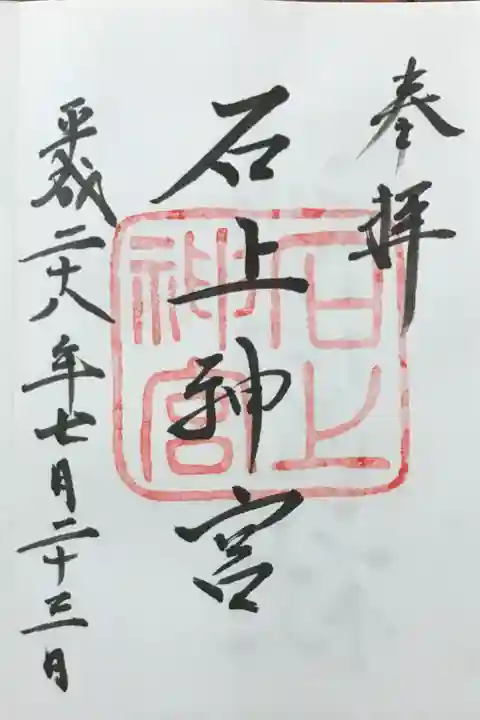 奉拝
石上神宮
石上神宮
平成二十八年七月二十三日